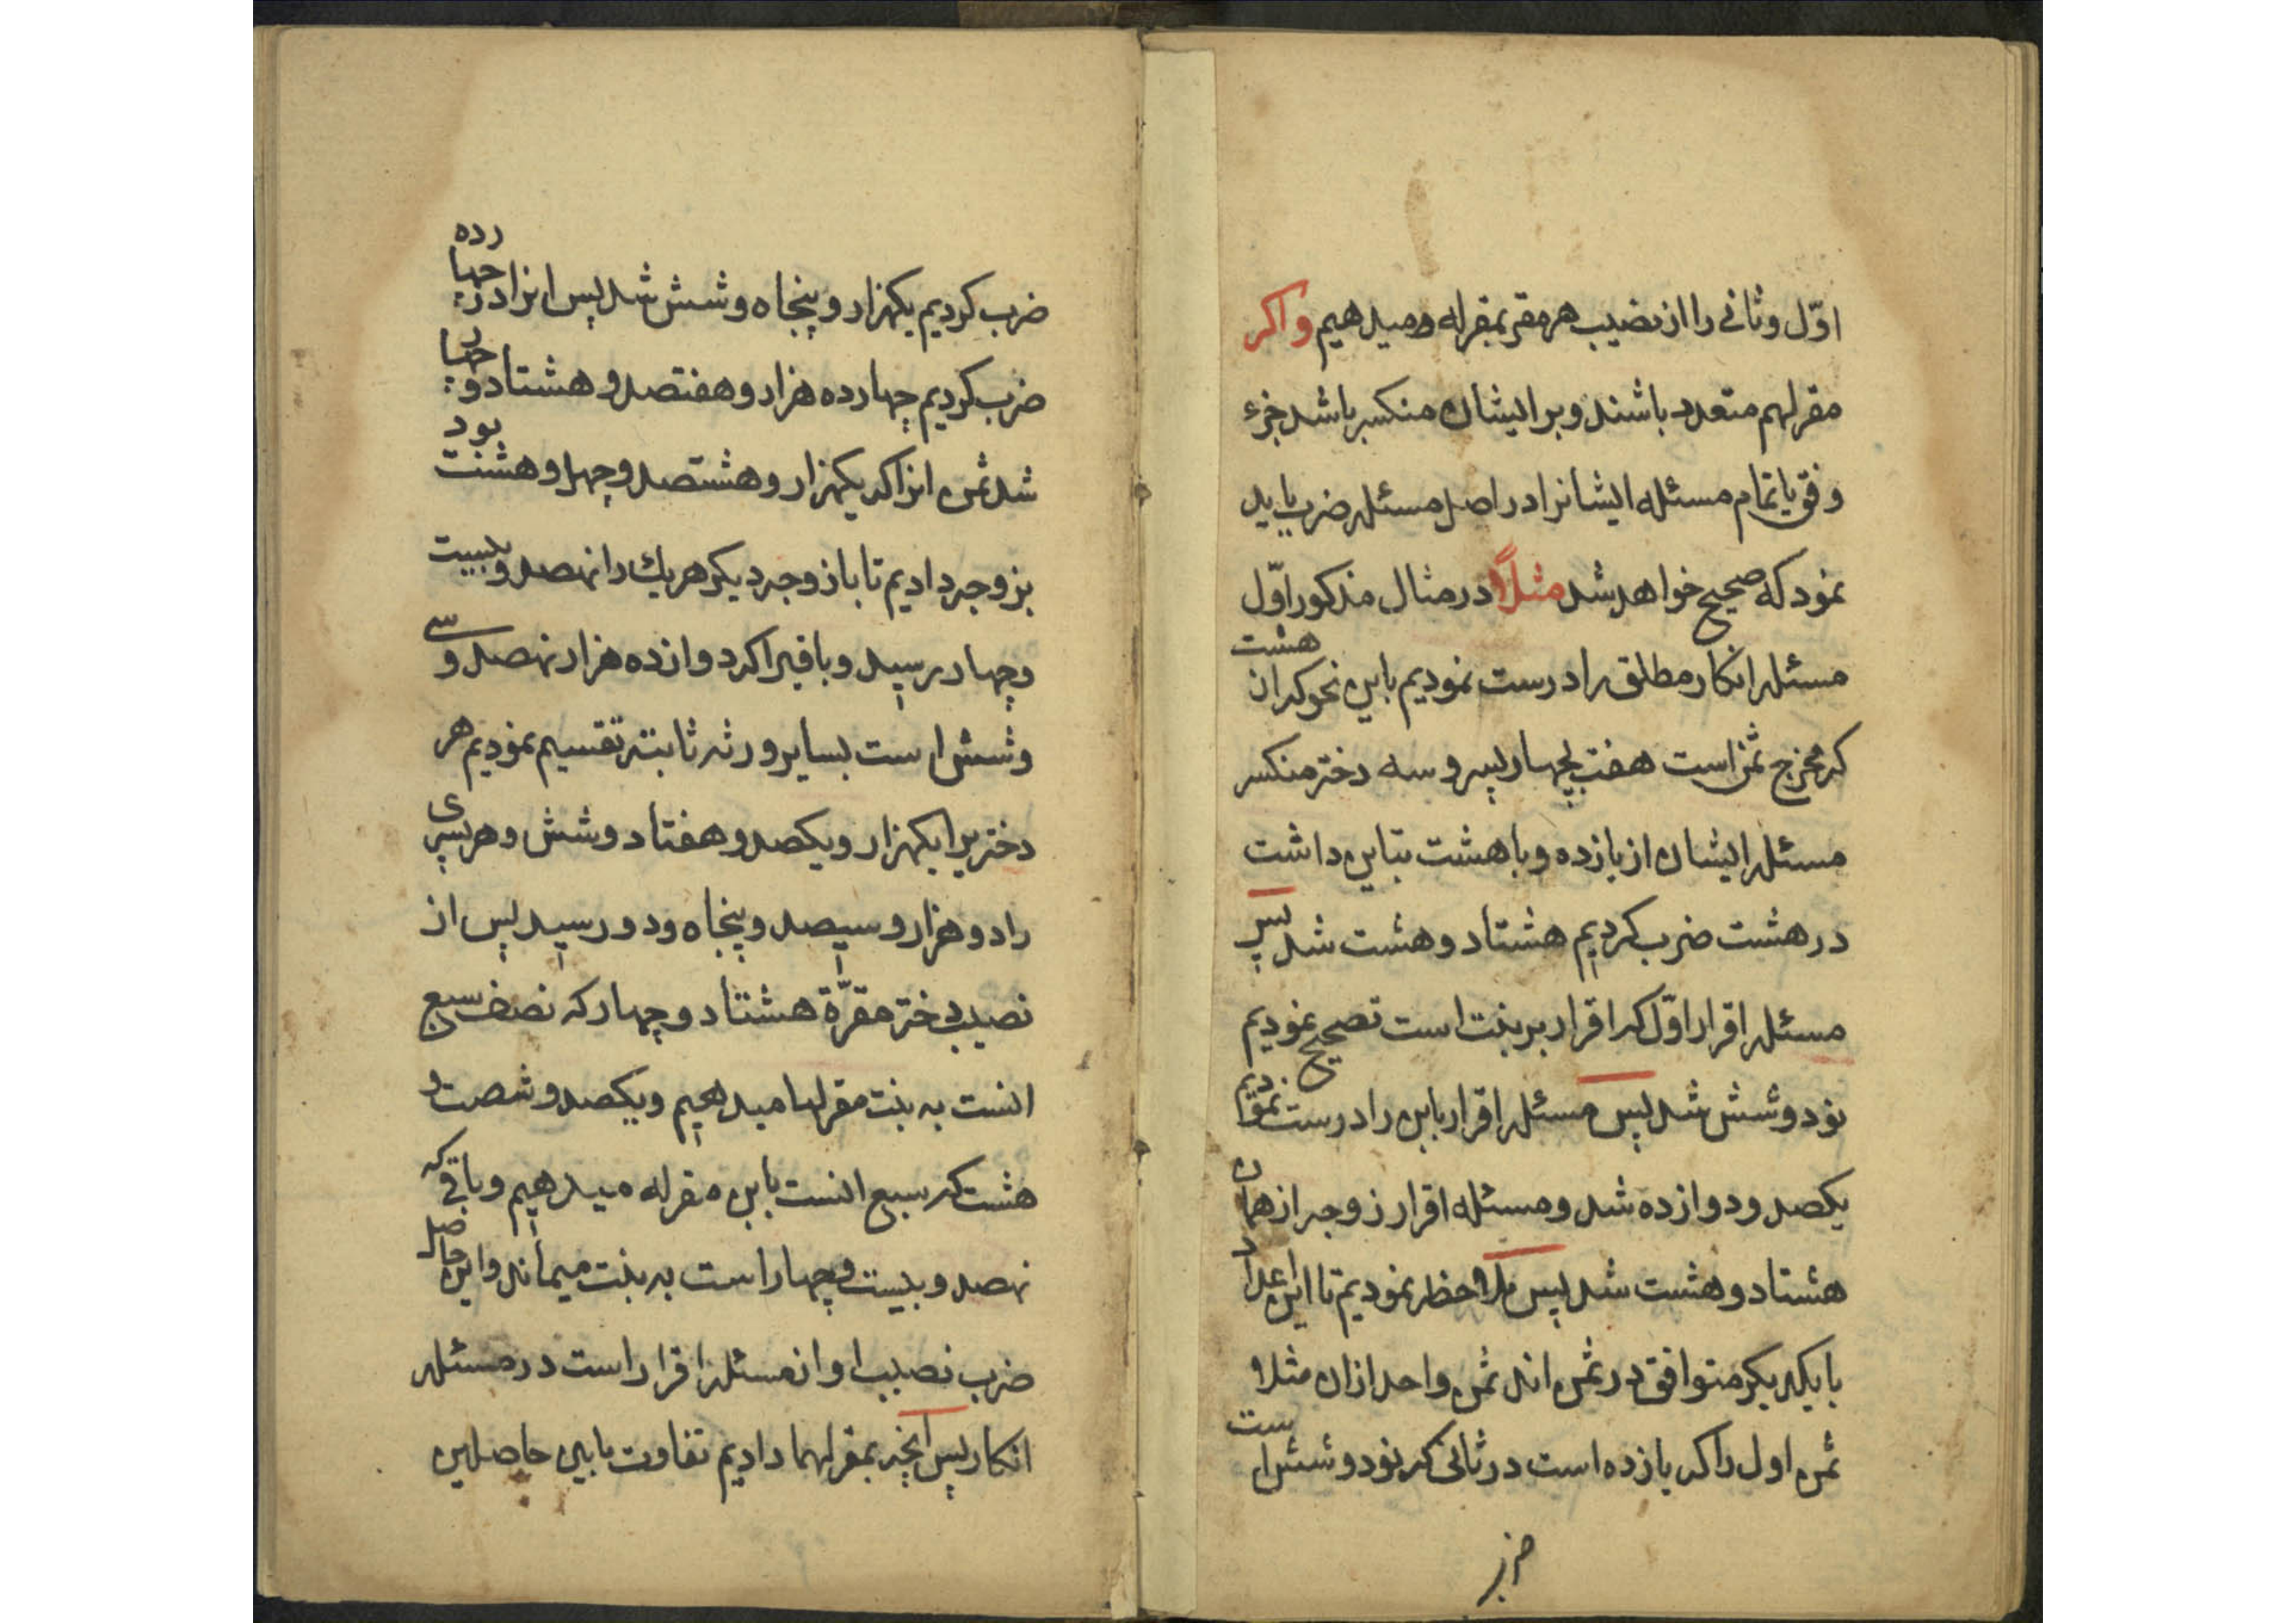 اوّل و ثانی را از نصیب هر مقر بمقرله میدهیم و اکر
مقرلهم متعدد باشند و بر ایشان منکسر باشد جزء
وفق یا تمام مسئله ایشانرا در اصل مسئله ضرب باید
نمود که صحیح خواهد شد مثلاً در مثال مذکور اوّل
مسئله انکار مطلق را درست نمودیم باین نحو که از هشت
که مخرج ثمن است هفت بچهار پسر و سه دختر منکسر
مسئله ایشان از یازده و با هشت تباین داشت
در هشت ضرب کردیم هشتاد و هشت شد پس
مسئله اقرار اوّل که اقرار بر بنت است تصحیح نمودیم
نود و شش شد پس مسئله اقرار بابن را درست نمودیم
یکصد و دوازده شد و مسئله اقرار زوجه از همان
هشتاد و هشت شد پس ملاحظه نمودیم تا این اعداد
با یکدیکر متوافق در ثمن اند ثمن واحد ازان مثلا
ثمن اول را که یازده است در ثانی که نود و شش است
ضرب
ضرب کردیم یکهزار و پنجاه و شش شد پس انرا در چهارده
ضرب کردیم چهارده هزار و هفتصد و هشتاد و چهار
شد ثمن انرا که یکهزار و هشتصد و چهل و هشت بود
بزوجه دادیم تا باز وجه دیکر هر یك را نهصد و بیست
و چهار رسید و باقیرا که دوازده هزار نهصد و سی
و شش است بسایر ورثه ثابته تقسیم نمودیم هر
دختریرا یکهزار و یکصد و هفتاد و شش و هر پسری
را دو هزار و سیصد و پنجاه و دو رسید پس از
نصیب دختر مقرّة هشتاد و چهار که نصف سبع
انست به بنت مقرلها میدهیم و یکصد و شصت و
هشت که سبع انست بابن مقرله میدهیم و باقی که
نهصد و بیست و چهار است به بنت میماند و این حاصل
ضرب نصیب او از مسئله اقرار است در مسئله
انکار پس انچه بمقرلهما دادیم تفاوت مابین حاصلین